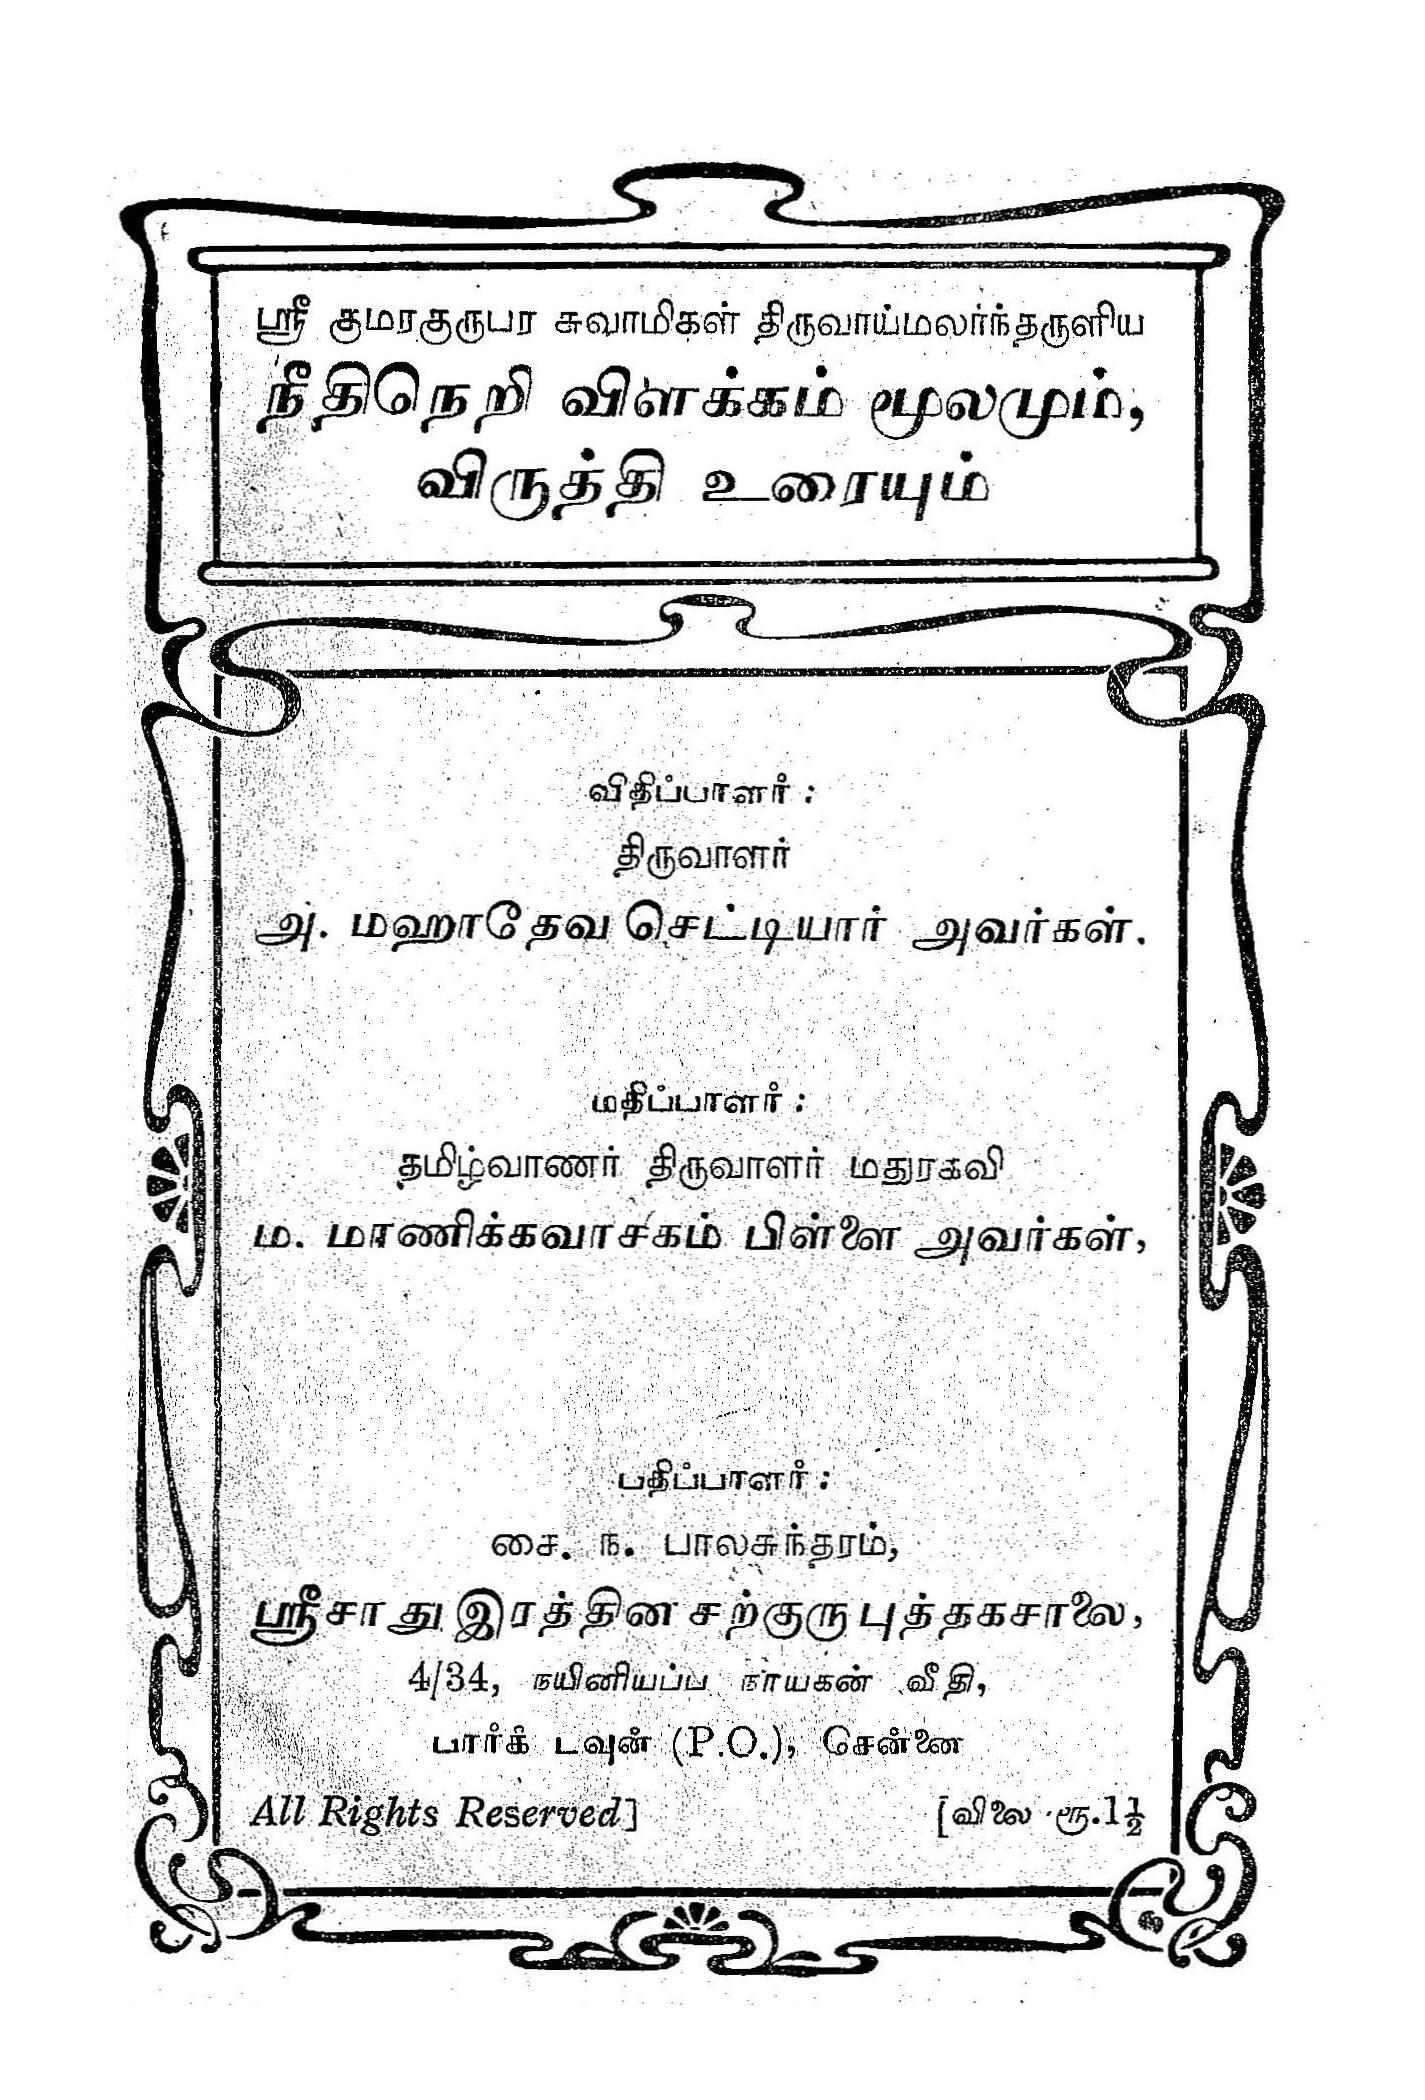 ஸ்ரீ குமரகுருபர சுவாமிகள் திருவாய்மலர்ந்தருளிய
நீதிநெறி விளக்கம் மூலமும்,
விருத்தி உரையும்
விதிப்பாளர் :
திருவாளர்
அ. மஹாதேவ செட்டியார் அவர்கள்.
மதிப்பாளர் :
தமிழ்வாணர் திருவாளர் மதுரகவி
ம. மாணிக்கவாசகம் பிள்ளை அவர்கள்,
பதிப்பாளர் :
சை. ந. பாலசுந்தரம்,
ஸ்ரீசாது இரத்தின சற்குரு புத்தகசாலை,
4/34, நயினியப்ப நாயகன் வீதி,
பார்க் டவுன் (P.O.), சென்னை
All Rights Reserved] [விலை ரூ.1½